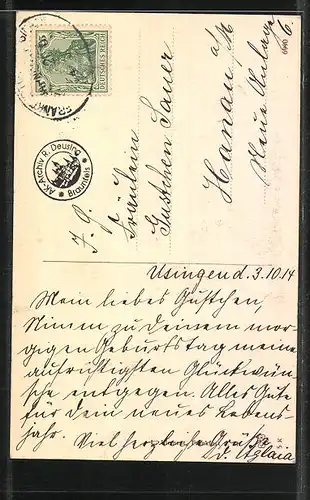 DEUTSCHES REICH
5
FRANKF
AK-Archiv R. Deusing
Braunfels
6940
Fräulein
Gustchen Sauer
Hanau a/M
Neue Anlage
6.
Usingen d. 3.10.14
Mein liebes Gustchen,
Nimm zu Deinem mor-
gigen Geburtstag meine
aufrichtigsten Glückwün-
sche entgegen. Alles Gute
für dein neues Lebens-
jahr. Viel herzliche Grüße